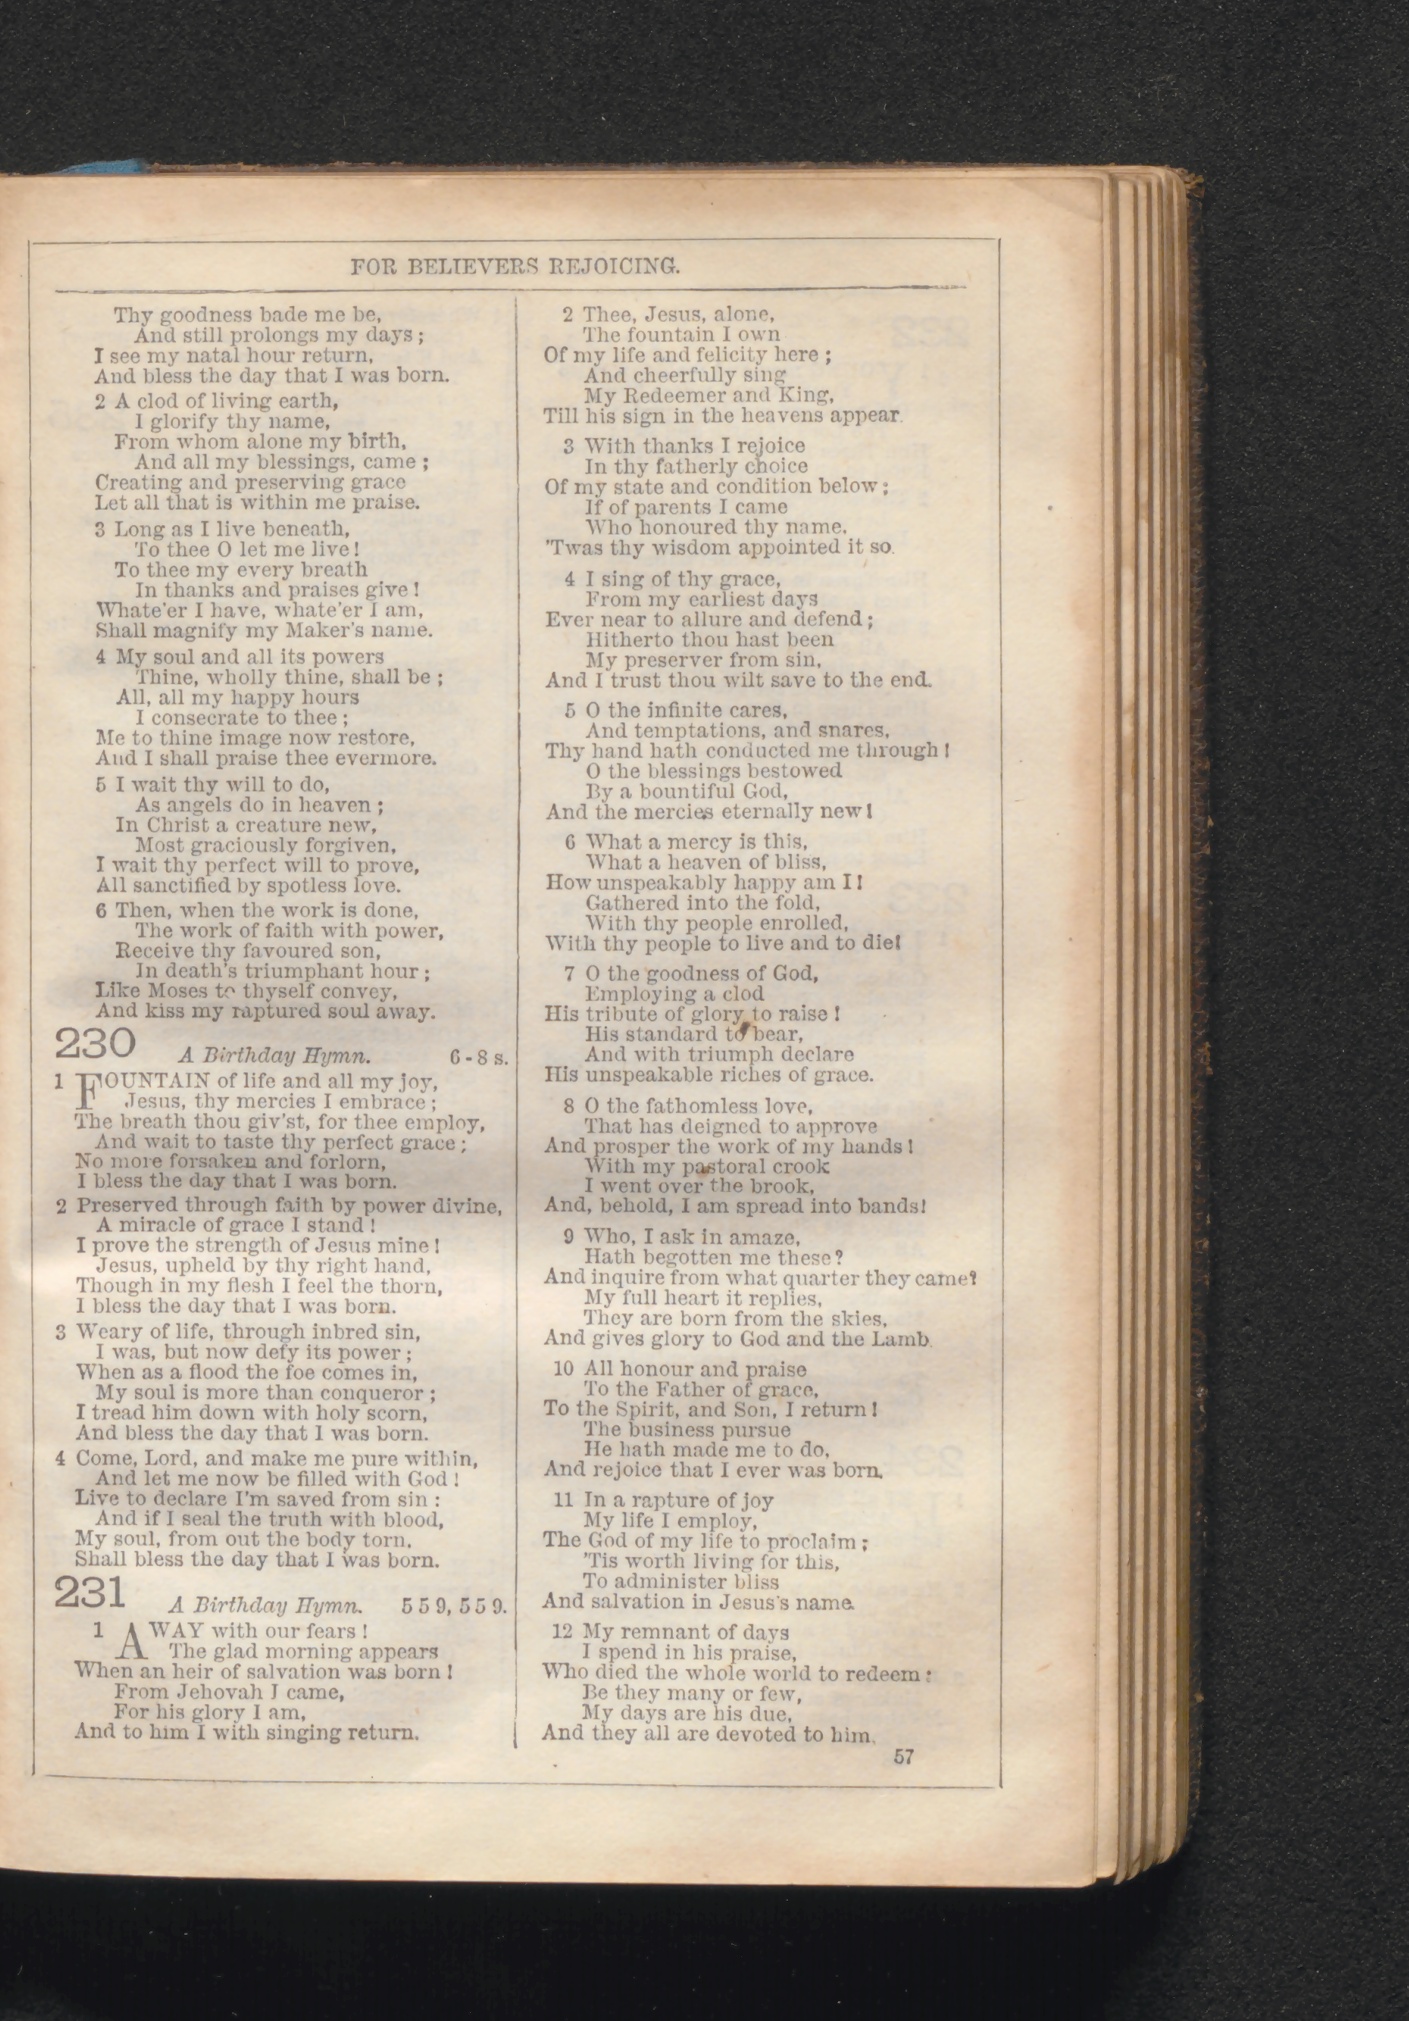 FOR BELIEVERS REJOICING.
Thy goodness bade me be,
And still prolongs my days;
I see my natal hour return,
And bless the day that I was born.
2 A clod of living earth,
I glorify thy name,
From whom alone my birth,
And all my blessings, came;
Creating and preserving grace
Let all that is within me praise.
3 Long as I live beneath,
To thee O let me live!
To thee my every breath
In thanks and praises give!
Whate'er I have, whate'er I am,
Shall magnify my Maker's name.
4 My soul and all its powers
Thine, wholly thine, shall be;
All, all my happy hours
I consecrate to thee;
Me to thine image now restore,
And I shall praise thee evermore.
5 I wait thy will to do,
As angels do in heaven;
In Christ a creature new,
Most graciously forgiven,
I wait thy perfect will to prove,
All sanctified by spotless love.
6 Then, when the work is done,
The work of faith with power,
Receive thy favoured son,
In death's triumphant hour;
Like Moses to thyself convey,
And kiss my raptured soul away.
230 A Birthday Hymn. 6-8 s.
1 FOUNTAIN of life and all my joy,
Jesus, thy mercies I embrace;
The breath thou giv'st, for thee employ,
And wait to taste thy perfect grace;
No more forsaken and forlorn,
I bless the day that I was born.
2 Preserved through faith by power divine,
A miracle of grace I stand!
I prove the strength of Jesus mine!
Jesus, upheld by thy right hand,
Though in my flesh I feel the thorn,
I bless the day that I was born.
3 Weary of life, through inbred sin,
I was, but now defy its power;
When as a flood the foe comes in,
My soul is more than conqueror;
I tread him down with holy scorn,
And bless the day that I was born.
4 Come, Lord, and make me pure within,
And let me now be filled with God!
Live to declare I'm saved from sin:
And if I seal the truth with blood,
My soul, from out the body torn,
Shall bless the day that I was born.
231 A Birthday Hymn. 5 5 9, 5 5 9.
1 AWAY with our fears!
The glad morning appears
When an heir of salvation was born!
From Jehovah I came,
For his glory I am,
And to him I with singing return.
2 Thee, Jesus, alone,
The fountain I own
Of my life and felicity here;
And cheerfully sing
My Redeemer and King,
Till his sign in the heavens appear.
3 With thanks I rejoice
In thy fatherly choice
Of my state and condition below;
If of parents I came
Who honoured thy name,
'Twas thy wisdom appointed it so.
4 I sing of thy grace,
From my earliest days
Ever near to allure and defend;
Hitherto thou hast been
My preserver from sin,
And I trust thou wilt save to the end.
5 O the infinite cares,
And temptations, and snares,
Thy hand hath conducted me through!
O the blessings bestowed
By a bountiful God,
And the mercies eternally new!
6 What a mercy is this,
What a heaven of bliss,
How unspeakably happy am I!
Gathered into the fold,
With thy people enrolled,
With thy people to live and to die!
7 O the goodness of God,
Employing a clod
His tribute of glory to raise!
His standard to bear,
And with triumph declare
His unspeakable riches of grace.
8 O the fathomless love,
That has deigned to approve
And prosper the work of my hands!
With my pastoral crook
I went over the brook,
And, behold, I am spread into bands!
9 Who, I ask in amaze,
Hath begotten me these?
And inquire from what quarter they came?
My full heart it replies,
They are born from the skies,
And gives glory to God and the Lamb.
10 All honour and praise
To the Father of grace,
To the Spirit, and Son, I return!
The business pursue
He hath made me to do,
And rejoice that I ever was born.
11 In a rapture of joy
My life I employ,
The God of my life to proclaim;
'Tis worth living for this,
To administer bliss
And salvation in Jesus's name.
12 My remnant of days
I spend in his praise,
Who died the whole world to redeem:
Be they many or few,
My days are his due,
And they all are devoted to him.
57